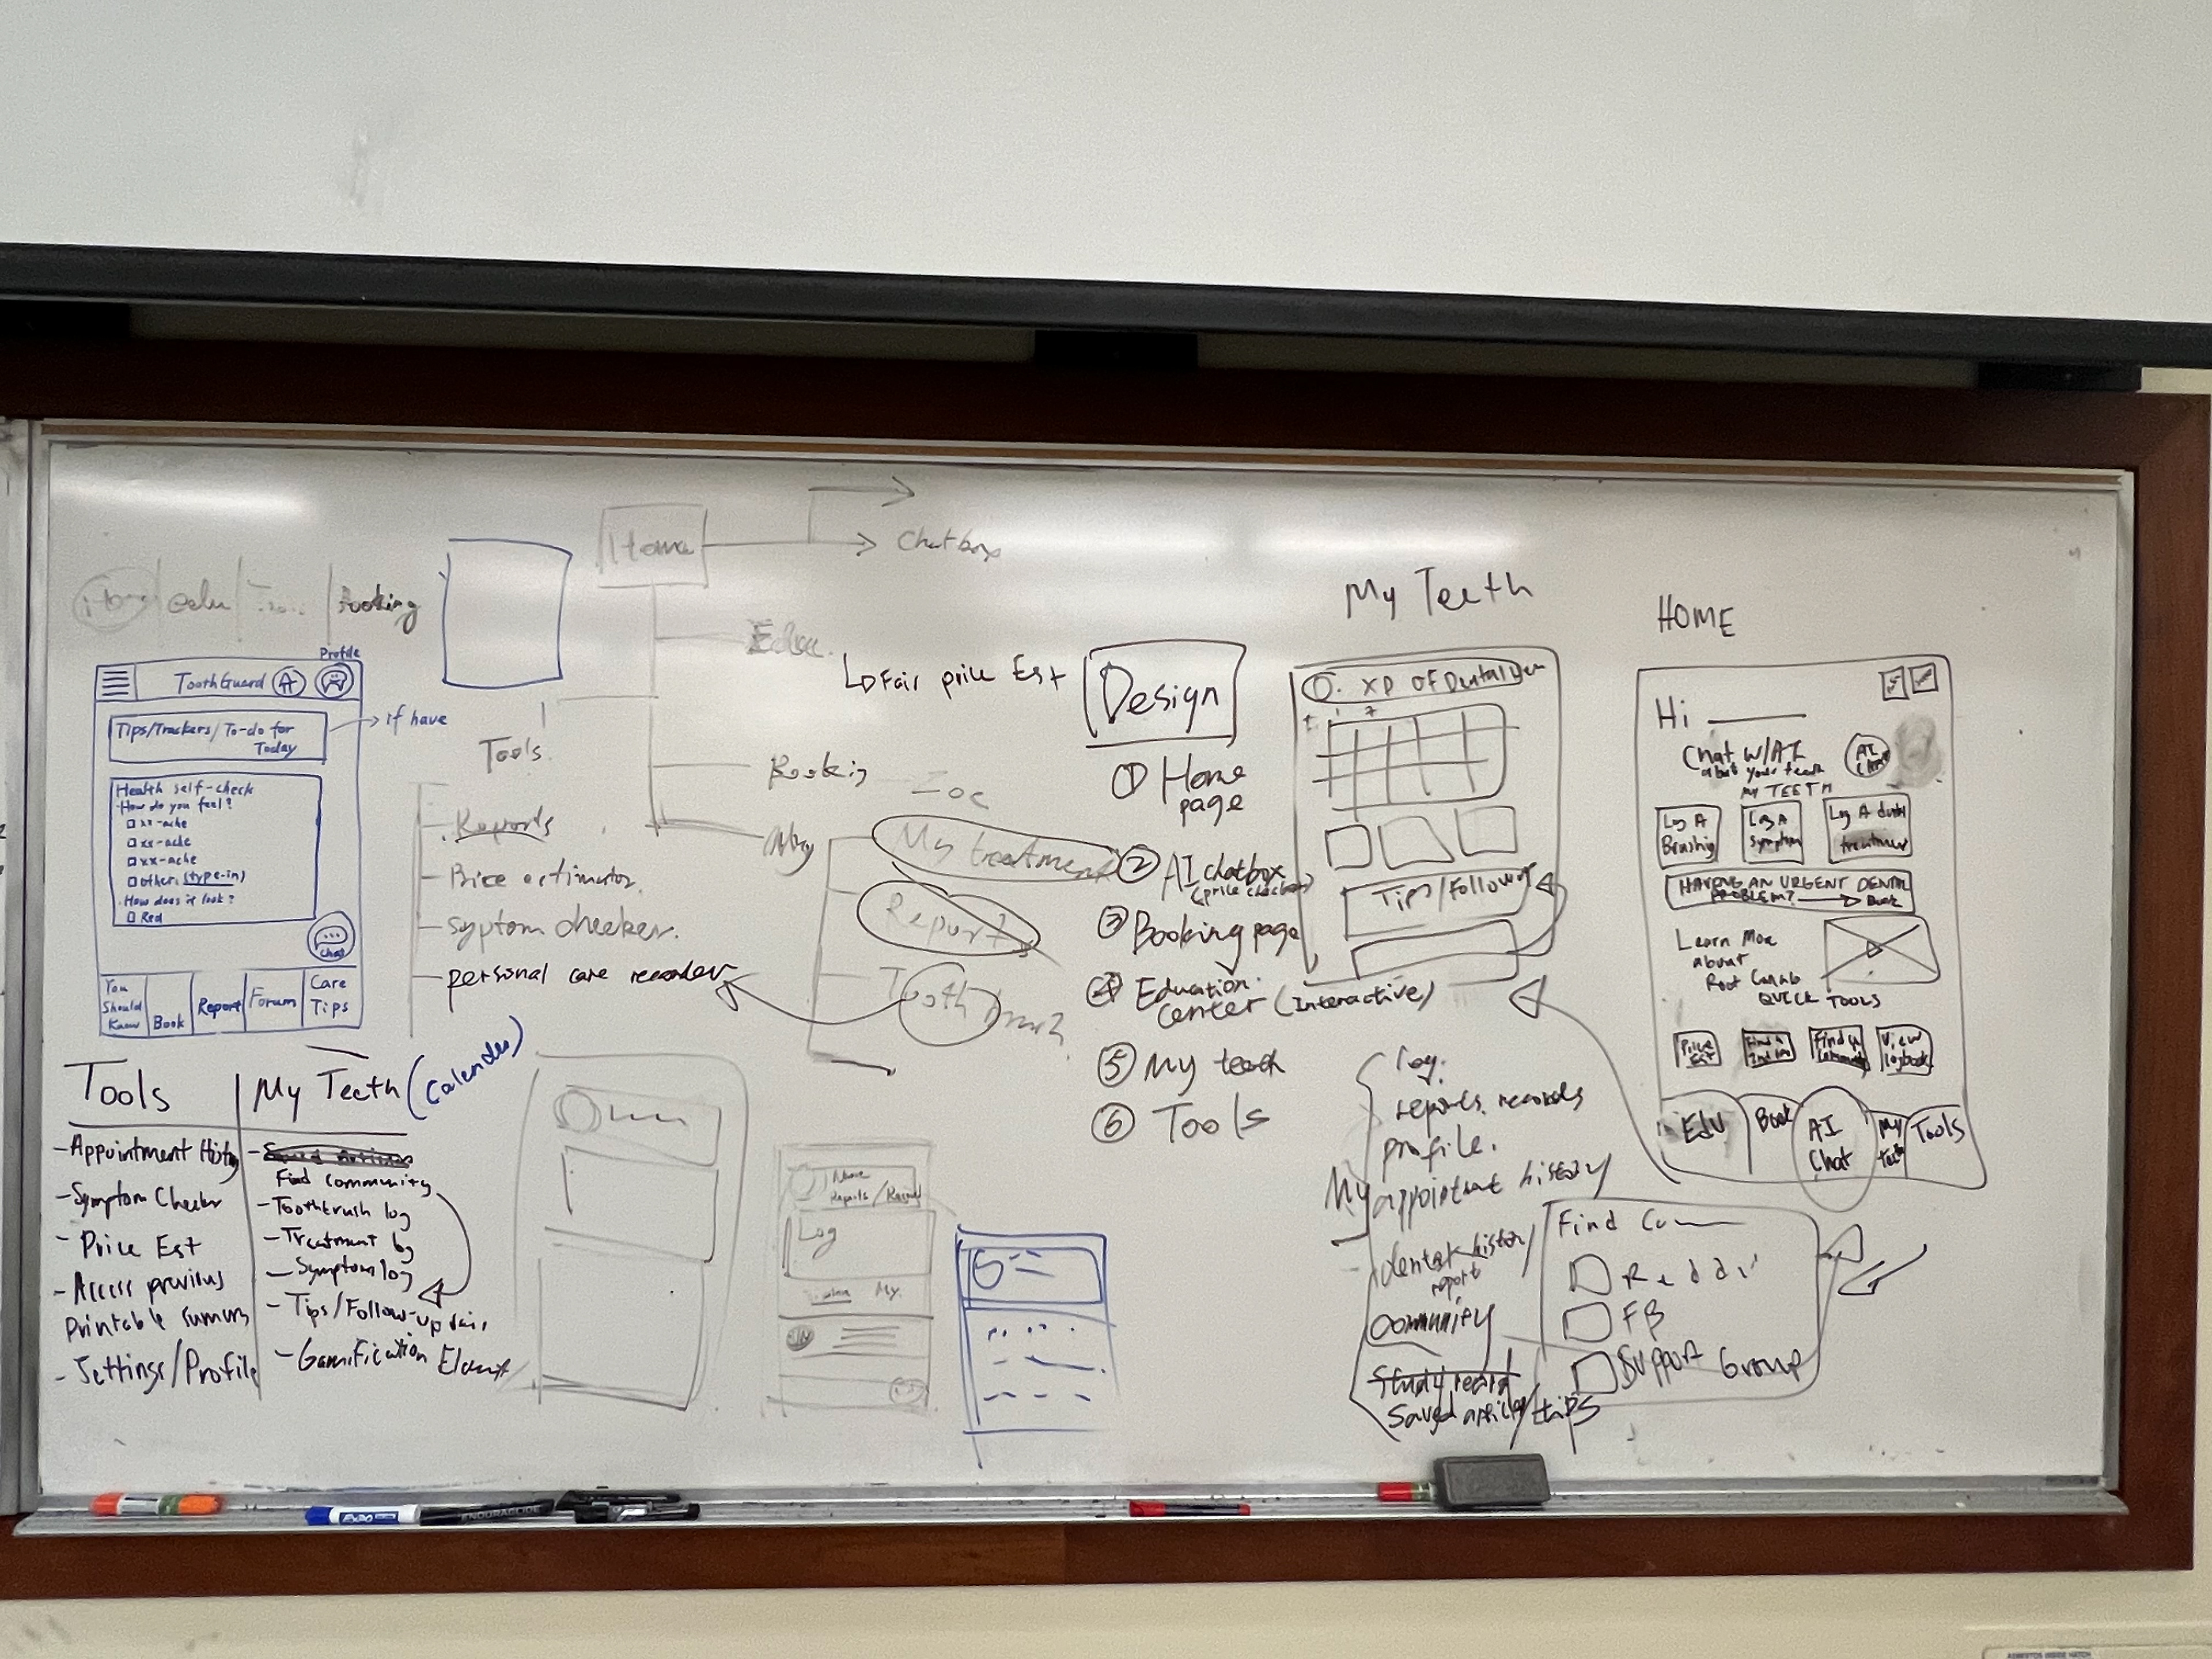 Home
Chatbox
edu
Booking
Educ.
Tools
Reports
Price estimator.
syptom checker.
personal care recorder
Booking
Zoc
My
My treatment
Reports
Tooth
Profile
ToothGuard A
Tips/Trackers/To-do for
Today
if have
Health self-check
How do you feel?
xx-ache
xx-ache
xx-ache
other (type-in)
How does it look?
Red
Chat
You Should Know
Book
Report
Forum
Care Tips
Tools
-Appointment History
-Symptom Checker
-Price Est
-Access previous
Printable summary
-Settings/Profile
My Teeth (Calender)
Find community
-Toothbrush log
-Treatment log
-Symptom log
-Tips/Follow-up
-Gamification Element
Name
Reports/
Log
My
Fair price Est
Design
① Home page
② AI chatbox
(price checker)
③ Booking page
④ Education
Center (Interactive)
⑤ My teeth
⑥ Tools
My Teeth
XP OF Dental
Tips/Followup
log.
reports. records
profile.
My appointment history
dental history
report
Community
Study record
Saved articles/tips
Find
Reddit
FB
Support Group
HOME
Hi
Chat W/AI
about your teeth
AI Chat
MY TEETH
Log A Brushing
Log A Symptom
Log A dental treatment
HAVING AN URGENT DENTAL
PROBLEM? Book
Learn More
about
Root Canals
QUICK TOOLS
Price EST
Find a
Find a
View logbook
EDU
Book
AI Chat
My Teeth
Tools
EXPO